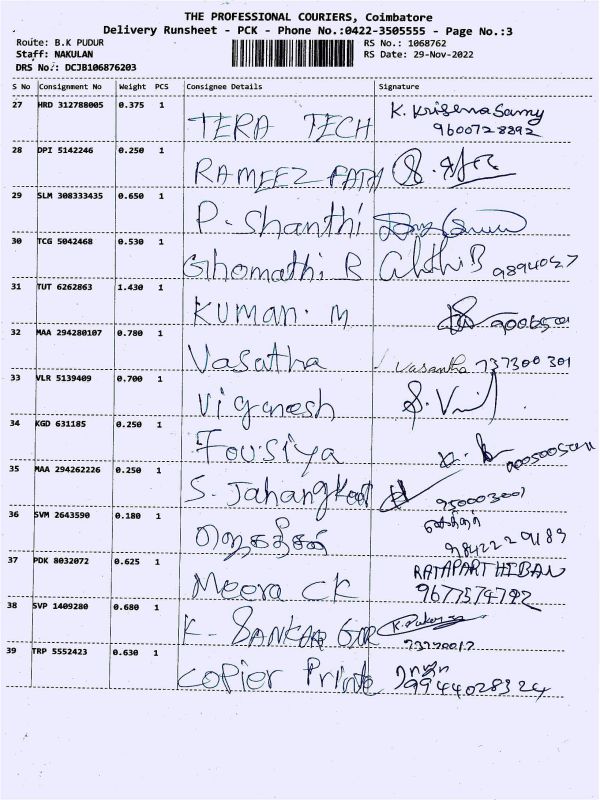 THE PROFESSIONAL COURIERS, Coimbatore
Delivery Runsheet - PCK - Phone No.:0422-3505555 - Page No.:3
Route: B.K PUDUR
RS No.: 1068762
Staff: NAKULAN
RS Date: 29-Nov-2022
DRS No.: DCJB106876203
S No Consignment No Weight PCS Consignee Details Signature
27 HRD 312788005 0.375 1 TERA TECH K. Krisenasamy
9600728892
28 DPI 5142246 0.250 1 RAMEEZ FATH
29 SLM 308333435 0.650 1 P. Shanthi
30 TCG 5042468 0.530 1 Ghomathi B
31 TUT 6262863 1.430 1 Kuman. M
32 MAA 294280107 0.780 1 Vasatha Vasantha 737300301
33 VLR 5139409 0.700 1 Viganesh
34 KGD 631185 0.250 1 Fousiya
35 MAA 294262226 0.250 1 S. Jahang 950003001
36 SVM 2643590 0.180 1 9842229189
37 PDK 8032072 0.625 1 Meera CK RATAPARTHIBAN
9677574792
38 SVP 1409280 0.680 1 K. SANKAR
39 TRP 5552423 0.630 1 Copier Printe ராஜா
9944028324